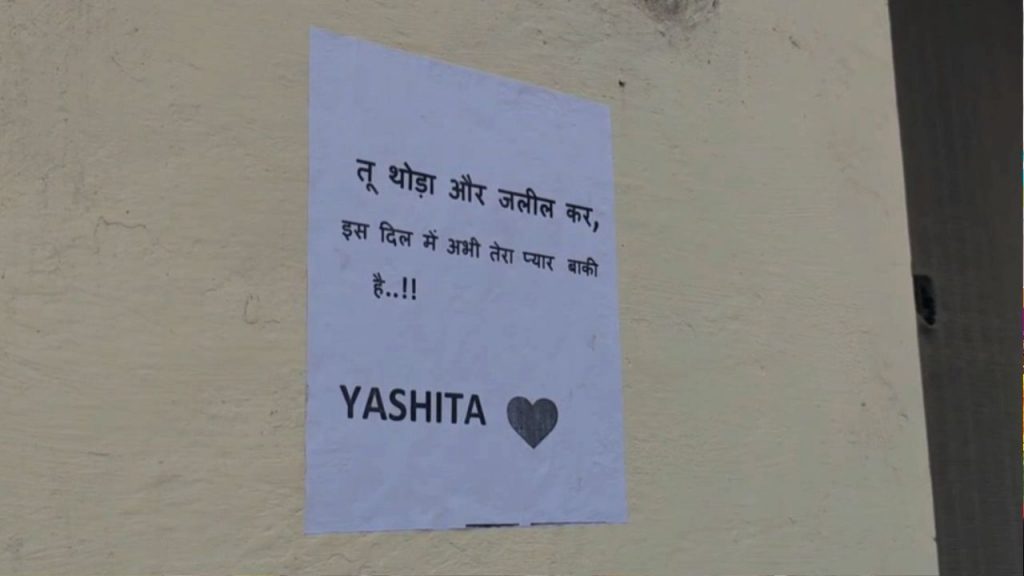 तू थोड़ा और जलील कर,
इस दिल में अभी तेरा प्यार बाकी
है..!!
YASHITA ♥